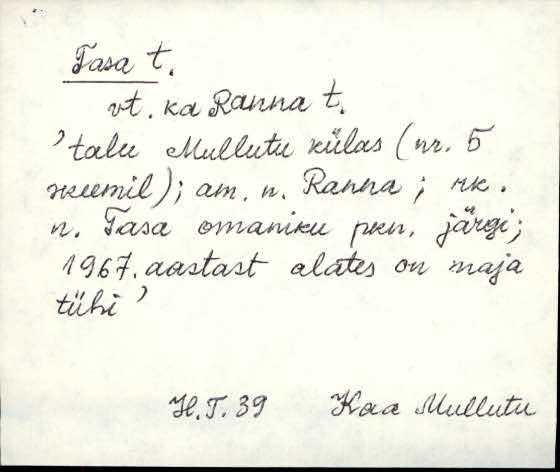 Tasa t.
vt. ka Ranna t.
'talu Mullutu külas (nr. 5
skeemil); am. n. Ranna; rk.
n. Tasa omaniku pkn. järgi;
1967. aastast alates on maja
tühi'
H.T. 39 Kaa Mullutu